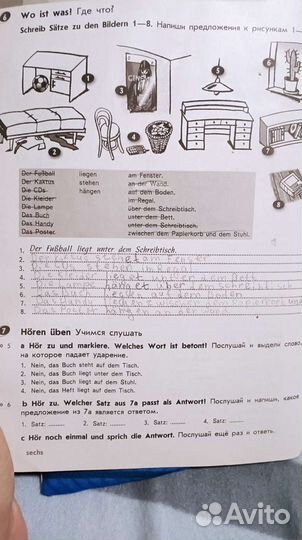 6 Wo ist was! Где что?
Schreib Sätze zu den Bildern 1—8. Напиши предложения к рисункам 1—
CINE
1
2
3
4
5
6
7
8
Der Fußball liegen am Fenster.
Der Kaktus stehen an der Wand.
Die CDs hängen auf dem Boden.
Die Kleider im Regal.
Die Lampe über dem Schreibtisch.
Das Buch unter dem Bett.
Das Handy unter dem Schreibtisch.
Das Poster zwischen dem Papierkorb und dem Stuhl.
1. Der Fußball liegt unter dem Schreibtisch.
2. am Fenster
3. im Regal
4. dem Bett
5. Die Lampe hänget über dem schreibtisch
6. Das Buch auf dem Boden
7. dem Papierkorb und
8. Das Poster hängen an der
7 Hören üben Учимся слушать
5 a Hör zu und markiere. Welches Wort ist betont! Послушай и выдели слово, на которое падает ударение.
1. Nein, das Buch steht auf dem Tisch.
2. Nein, das Buch liegt unter dem Tisch.
3. Nein, das Buch liegt auf dem Stuhl.
4. Nein, das Heft liegt auf dem Tisch.
6 b Hör zu. Welcher Satz aus 7a passt als Antwort! Послушай и напиши, какое
предложение из 7а является ответом.
1. Satz: 2. Satz: 3. Satz: 4. Satz:
c Hör noch einmal und sprich die Antwort. Послушай ещё раз и ответь.
sechs
Avito